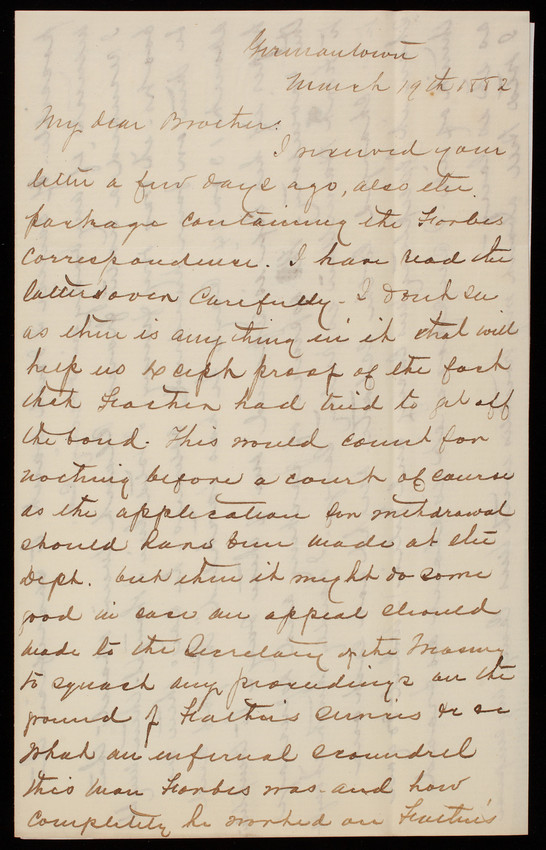 Germantown
March 19th 1882
My dear Brother:
I received your
letter a few days ago, also the
package containing the Forbes
Correspondence. I have read the
latter over Carefully - I dont see
as there is anything in it that will
help us except proof of the fact
that Father had tried to get off
the bond. This would count for
nothing before a court of course
as the application for withdrawal
should have been made at the
Dept. but then it might do some
good in case an appeal should
made to the Secretary of the Treasury
to squash any proceedings on the
ground of Father's services &c
What an infernal scoundrel
this man Forbes was and how
completely he worked on Father's